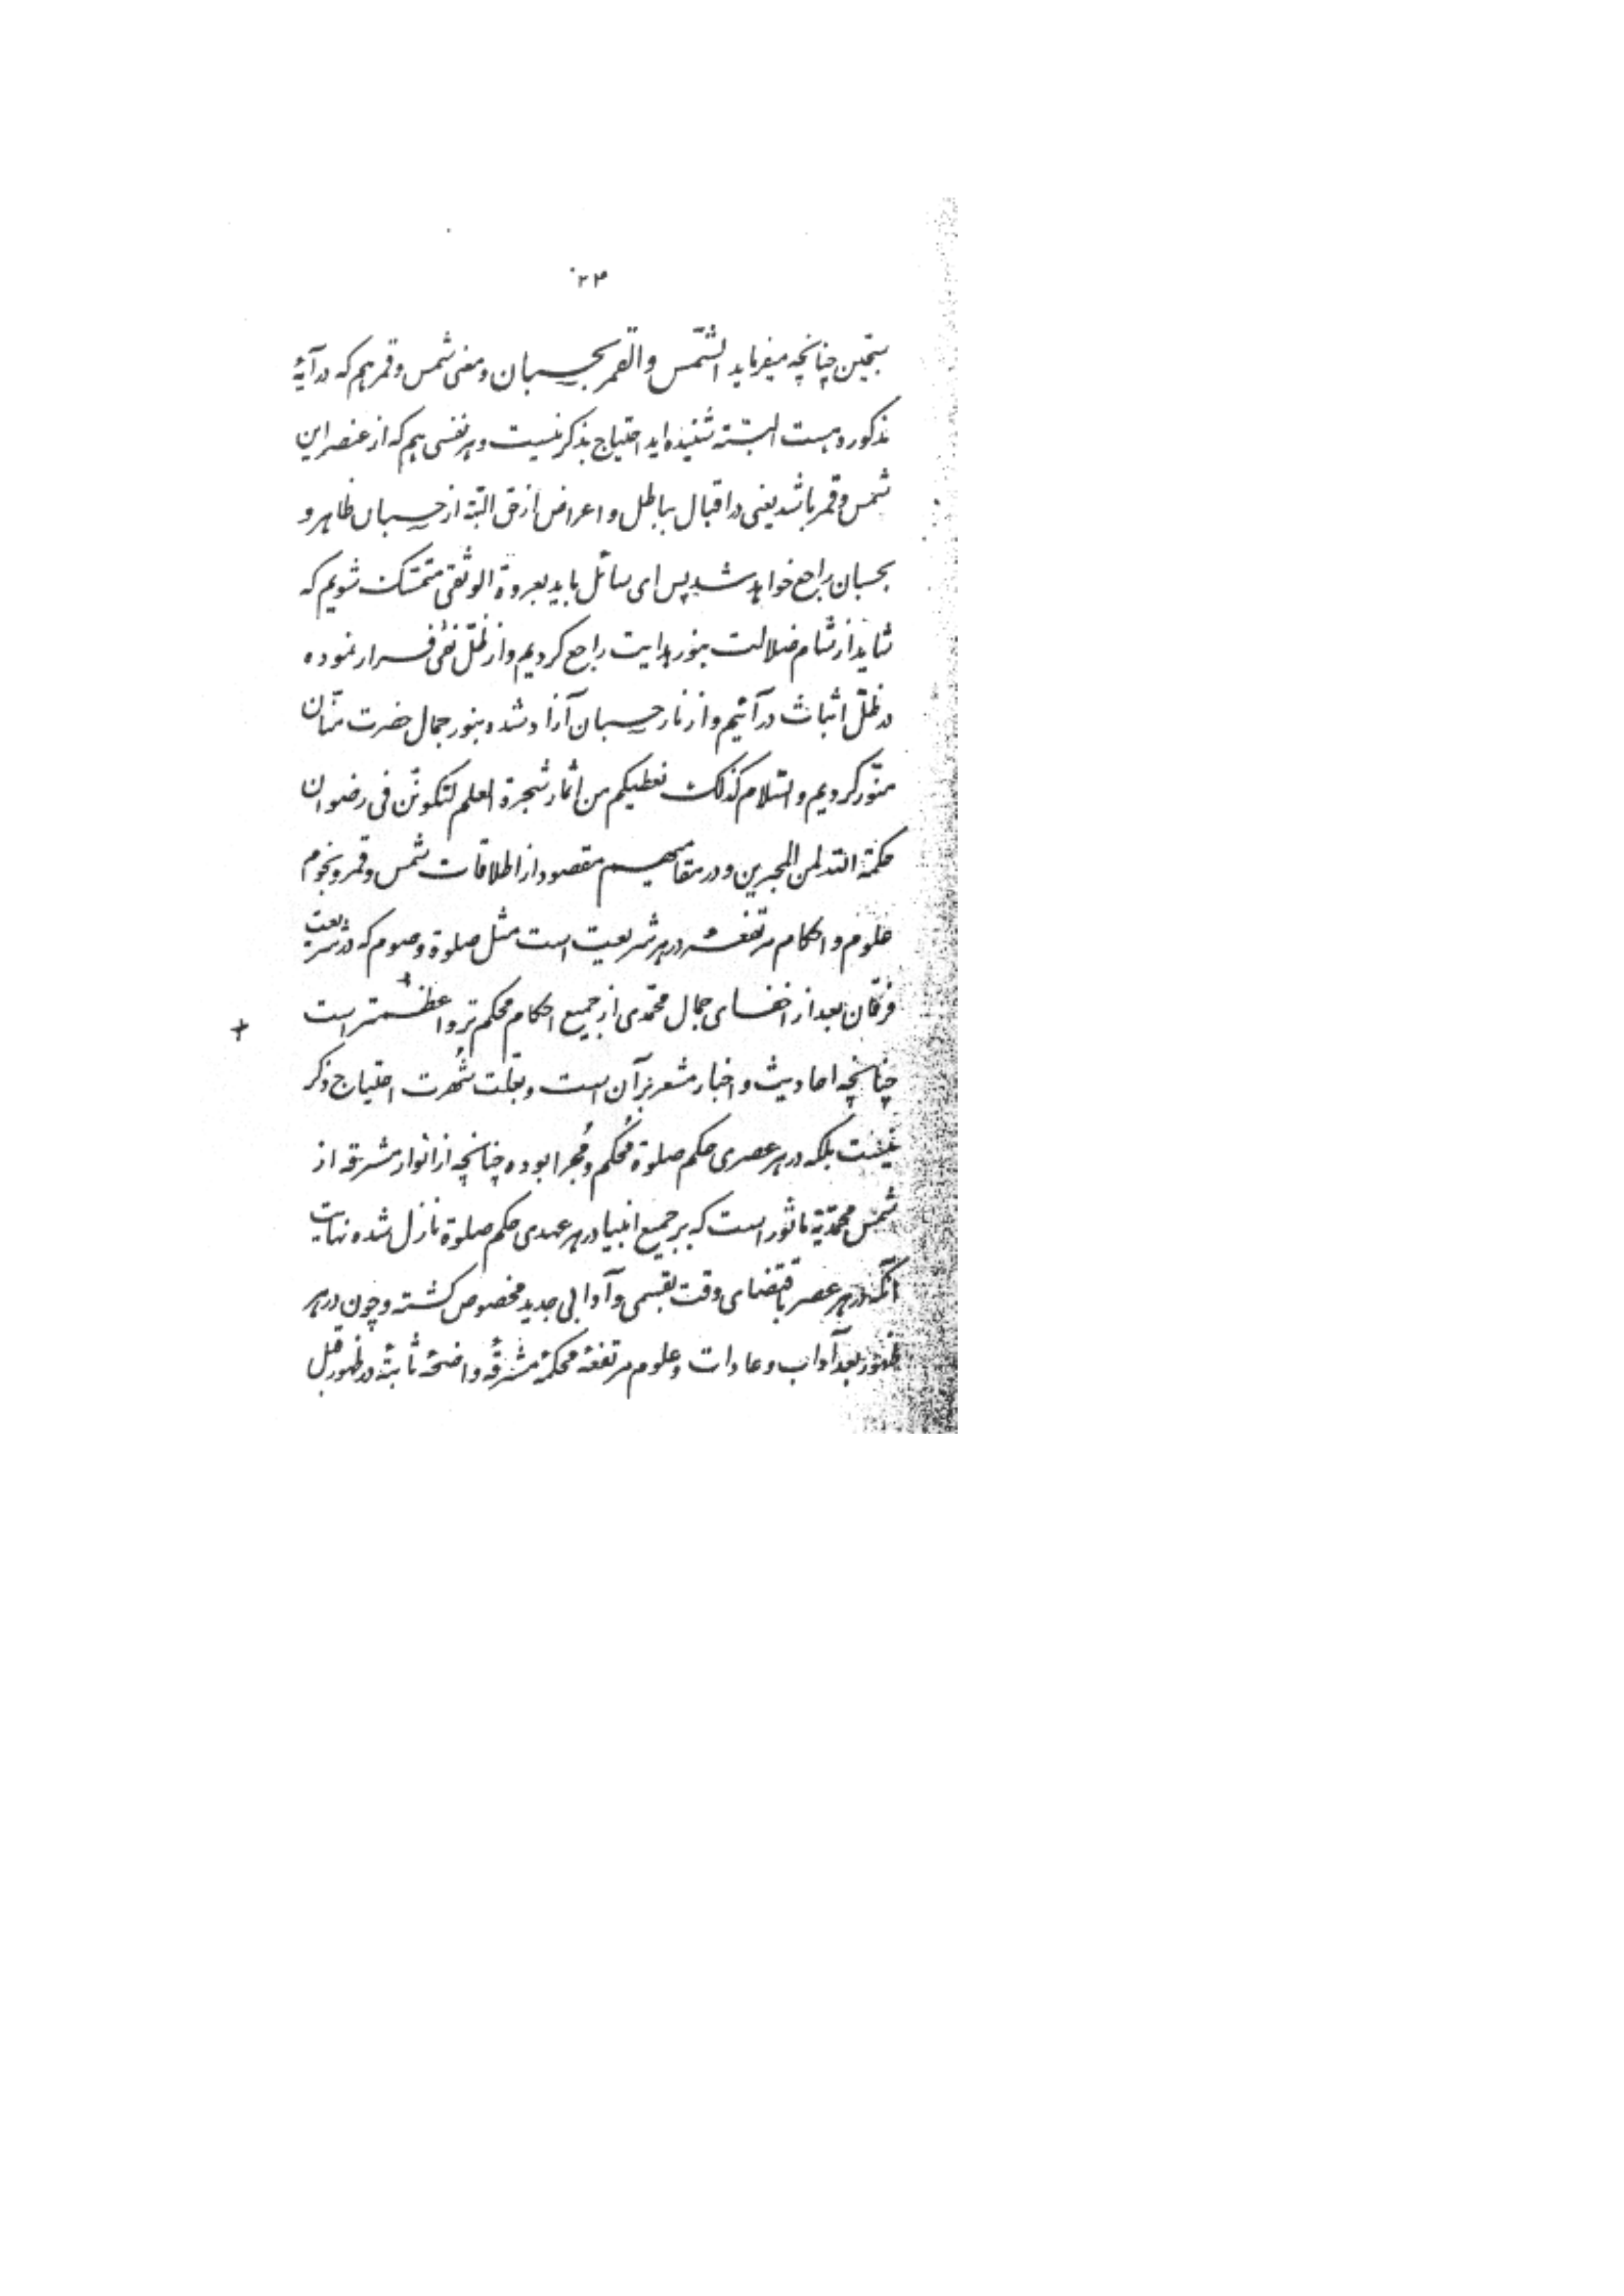 ۳۳
سجّین چنانچه میفرماید الشّمس و القمر بحسبان و معنی شمس و قمر هم که در آیهٔ
مذکوره هست البتّه شنیده‌اید احتیاج بذکر نیست و هر نفسی هم که از عنصر این
شمس و قمر باشد یعنی در اقبال بباطل و اعراض از حق البتّه از حسبان ظاهر و
بحسبان راجع خواهد شد پس ای سائل باید بعروة الوثقی متمسّک شویم که
شاید از شام ضلالت بنور هدایت راجع گردیم و از ظلّ نفی فرار نموده
در ظلّ اثبات درآئیم و از نار حسبان آزاد شده بنور جمال حضرت منّان
منوّر گردیم و السّلام کذلک نعطیکم من اثمار شجرة العلم لتکوننّ فی رضوان
حکمة اللّه لمن المحبرین و در مقامی هم مقصود از اطلاقات شمس و قمر و نجوم
علوم و احکام مرتفعه در هر شریعت است مثل صلوة و صوم که در شریعت
فرقان بعد از اخفای جمال محمّدی از جمیع احکام محکم‌تر و اعظمتر است
چنانچه احادیث و اخبار مشعر بر آن است و بعلّت شهرت احتیاج ذکر
نیست بلکه در هر عصری حکم صلوة مُحکم و مُجرا بوده چنانچه از انوار مشرقه از
شمس محمّدیّه ماثور است که بر جمیع انبیا در هر عهدی حکم صلوة نازل شده نهایت
آنکه در هر عصر باقتضای وقت بقسمی و آدابی جدید مخصوص گشته و چون در هر
ظهور بعد آداب و عادات و علوم مرتفعهٔ محکمهٔ مشرقهٔ واضحهٔ ثابتهٔ در ظهور قبل